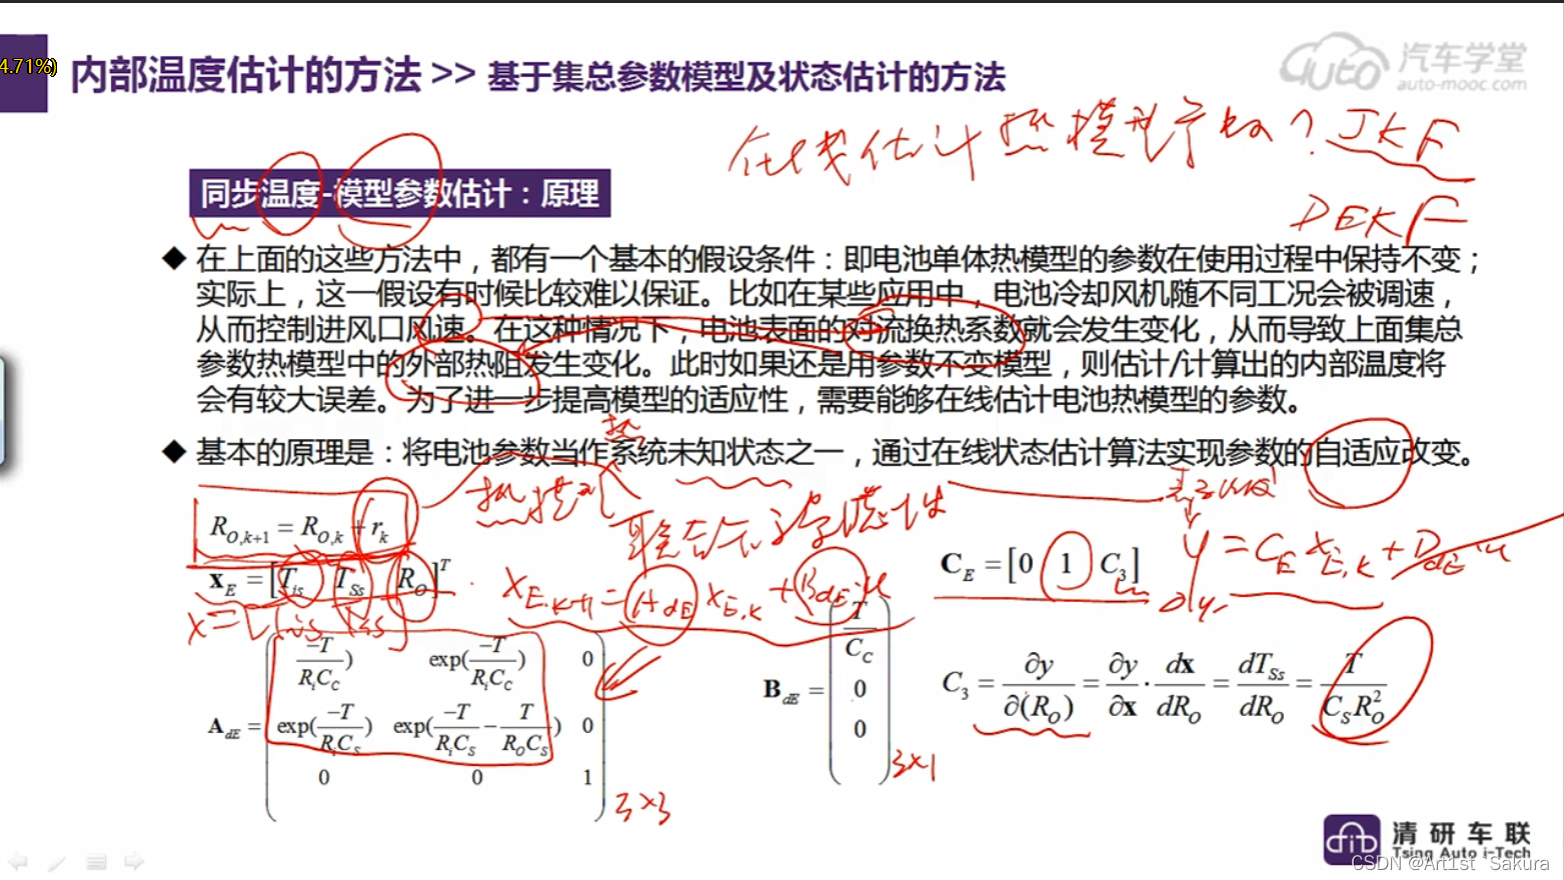 4.71%)
内部温度估计的方法 >> 基于集总参数模型及状态估计的方法
汽车学堂
auto-mooc.com
在线估计热模型参数? JKF
DEKF
同步温度-模型参数估计：原理
◆ 在上面的这些方法中，都有一个基本的假设条件：即电池单体热模型的参数在使用过程中保持不变；
实际上，这一假设有时候比较难以保证。比如在某些应用中，电池冷却风机随不同工况会被调速，
从而控制进风口风速。在这种情况下，电池表面的对流换热系数就会发生变化，从而导致上面集总
参数热模型中的外部热阻发生变化。此时如果还是用参数不变模型，则估计/计算出的内部温度将
会有较大误差。为了进一步提高模型的适应性，需要能够在线估计电池热模型的参数。
热
◆ 基本的原理是：将电池参数当作系统未知状态之一，通过在线状态估计算法实现参数的自适应改变。
热模型
R_{O,k+1} = R_{O,k} + r_k
x_E = [T_{is} T_{Ss} R_O]^T
x = [T_{is} T_{ss}]
x_{E,k+1} = A_{dE} x_{E,k} + B_{dE} u
C_E = [0 1 C_3]
y = C_E x_{E,k} + D_{dE} u
A_{dE} = ( -T/(R_iC_C) ) exp( -T/(R_iC_C) ) 0
exp( -T/(R_iC_S) ) exp( -T/(R_iC_S) - T/(R_OC_S) ) 0
0 0 1 )
3×3
B_{dE} = ( T/C_C
0
0 )
3×1
C_3 = ∂y/∂(R_O) = ∂y/∂x · dx/dR_O = dT_{Ss}/dR_O = T/(C_S R_O^2)
清研车联
Tsing Auto i-Tech
CSDN @Art1st_Sakura